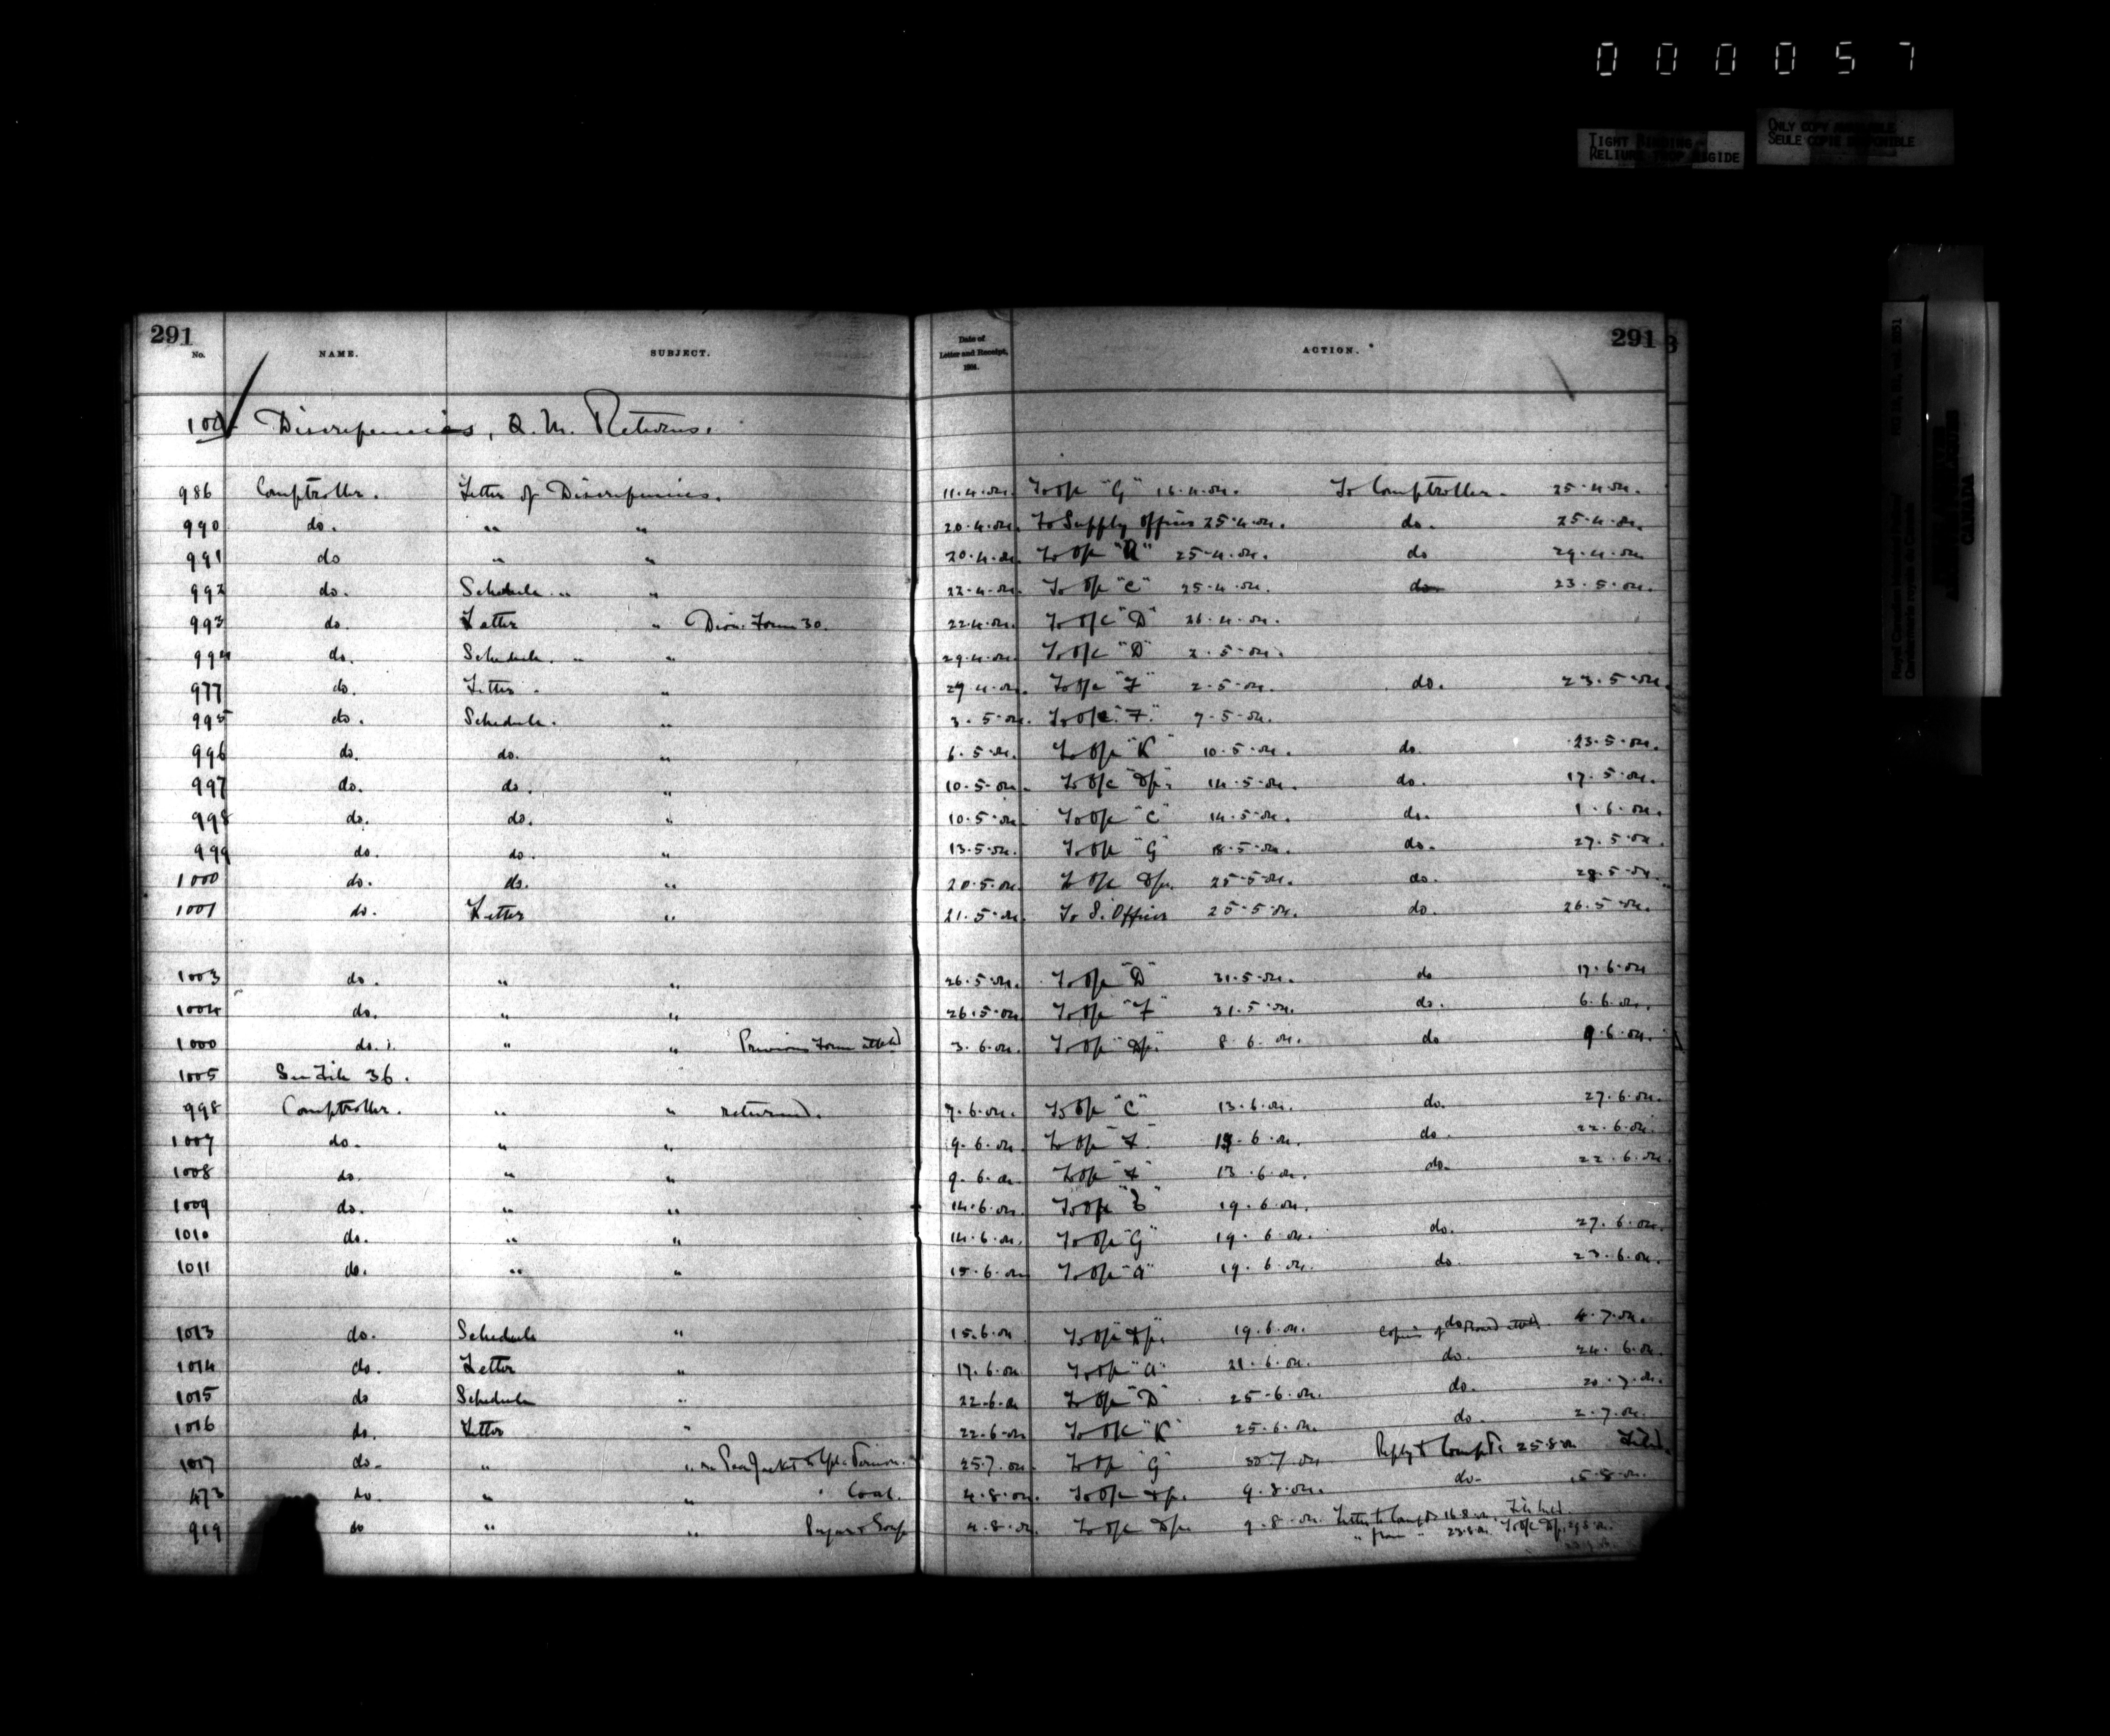 000057
TIGHT BINDING
RELIURE TROP RIGIDE
ONLY COPY AVAILABLE
SEULE COPIE DISPONIBLE
291 291
No. NAME. SUBJECT. Date of Letter and Receipt, 1904. ACTION.
100 Discrepancies, Q. M. Returns.
986 Comptroller. Letter of Discrepancies. 11.4.04. To O/c "G" 16.4.04. To Comptroller. 25.4.04.
990 do. " " 20.4.04. To Supply Officer 25.4.04. do. 25.4.04.
991 do " " 20.4.04 To O/c 25.4.04. do 29.4.04
992 do. Schedule. " " 22.4.04. To O/c "C" 25.4.04. do 23.5.04.
993 do. Letter " Divn. Form 30. 22.4.04. To O/c "D" 26.4.04.
994 do. Schedule. " " 29.4.04 To O/c "D" 2.5.04.
977 do. Letter. " 29.4.04. To O/c "F" 2.5.04. do. 23.5.04.
995 do. Schedule. " 3.5.04. To O/c "F." 7.5.04.
996 do. do. " 6.5.04. To O/c "K" 10.5.04. do. 23.5.04.
997 do. do. " 10.5.04. To O/c "Dp." 14.5.04. do. 17.5.04.
998 do. do. " 10.5.04 To O/c "C" 14.5.04. do. 1.6.04.
999 do. do. " 13.5.04. To O/c "G" 18.5.04. do. 27.5.04.
1000 do. do. " 20.5.04. To O/c Dp. 25.5.04. do. 28.5.04.
1001 do. Letter " 21.5.04. To S. Officer 25.5.04. do. 26.5.04.
1003 do. " " 26.5.04. To O/c "D" 31.5.04. do 17.6.04
1004 do. " " 26.5.04 To O/c "F" 31.5.04. do. 6.6.04.
1000 do. " " Previous Form attchd 3.6.04. To O/c "Dp." 8.6.04. do 9.6.04.
1005 See File 36.
998 Comptroller. " " returned. 7.6.04. To O/c "C" 13.6.04. do. 27.6.04.
1007 do. " " 9.6.04. To O/c "F" 13.6.04. do. 22.6.04.
1008 do. " " 9.6.04. To O/c 13.6.04. do. 22.6.04.
1009 do. " " 14.6.04. To O/c 19.6.04.
1010 do. " " 14.6.04. To O/c "G" 19.6.04. do. 27.6.04.
1011 do. " " 15.6.04 To O/c "A" 19.6.04. do. 23.6.04.
1013 do. Schedule " 15.6.04 To O/c "Dp." 19.6.04. Copies of do 4.7.04.
1014 do. Letter " 17.6.04 To O/c "A" 21.6.04. do. 24.6.04.
1015 do Schedule " 22.6.04 To O/c "D" 25.6.04. do. 20.7.04.
1016 do. Letter " 22.6.04 To O/c "K" 25.6.04. do. 2.7.04.
1017 do. " " re Pea Jacket to 25.7.04. To O/c "G" 30.7.04 Reply to Compt. 25.8.04 Filed.
473 do. " " Coal. 4.8.04. To O/c Dp. 9.8.04. do. 15.8.04.
919 do " " Sugar & Soap 4.8.04. To O/c Dp. 9.8.04. Letter to Compt. 16.8.04.
" from " 23.8.04. To O/c Dp.
Royal Canadian Mounted Police
Gendarmerie royale du Canada
CANADA